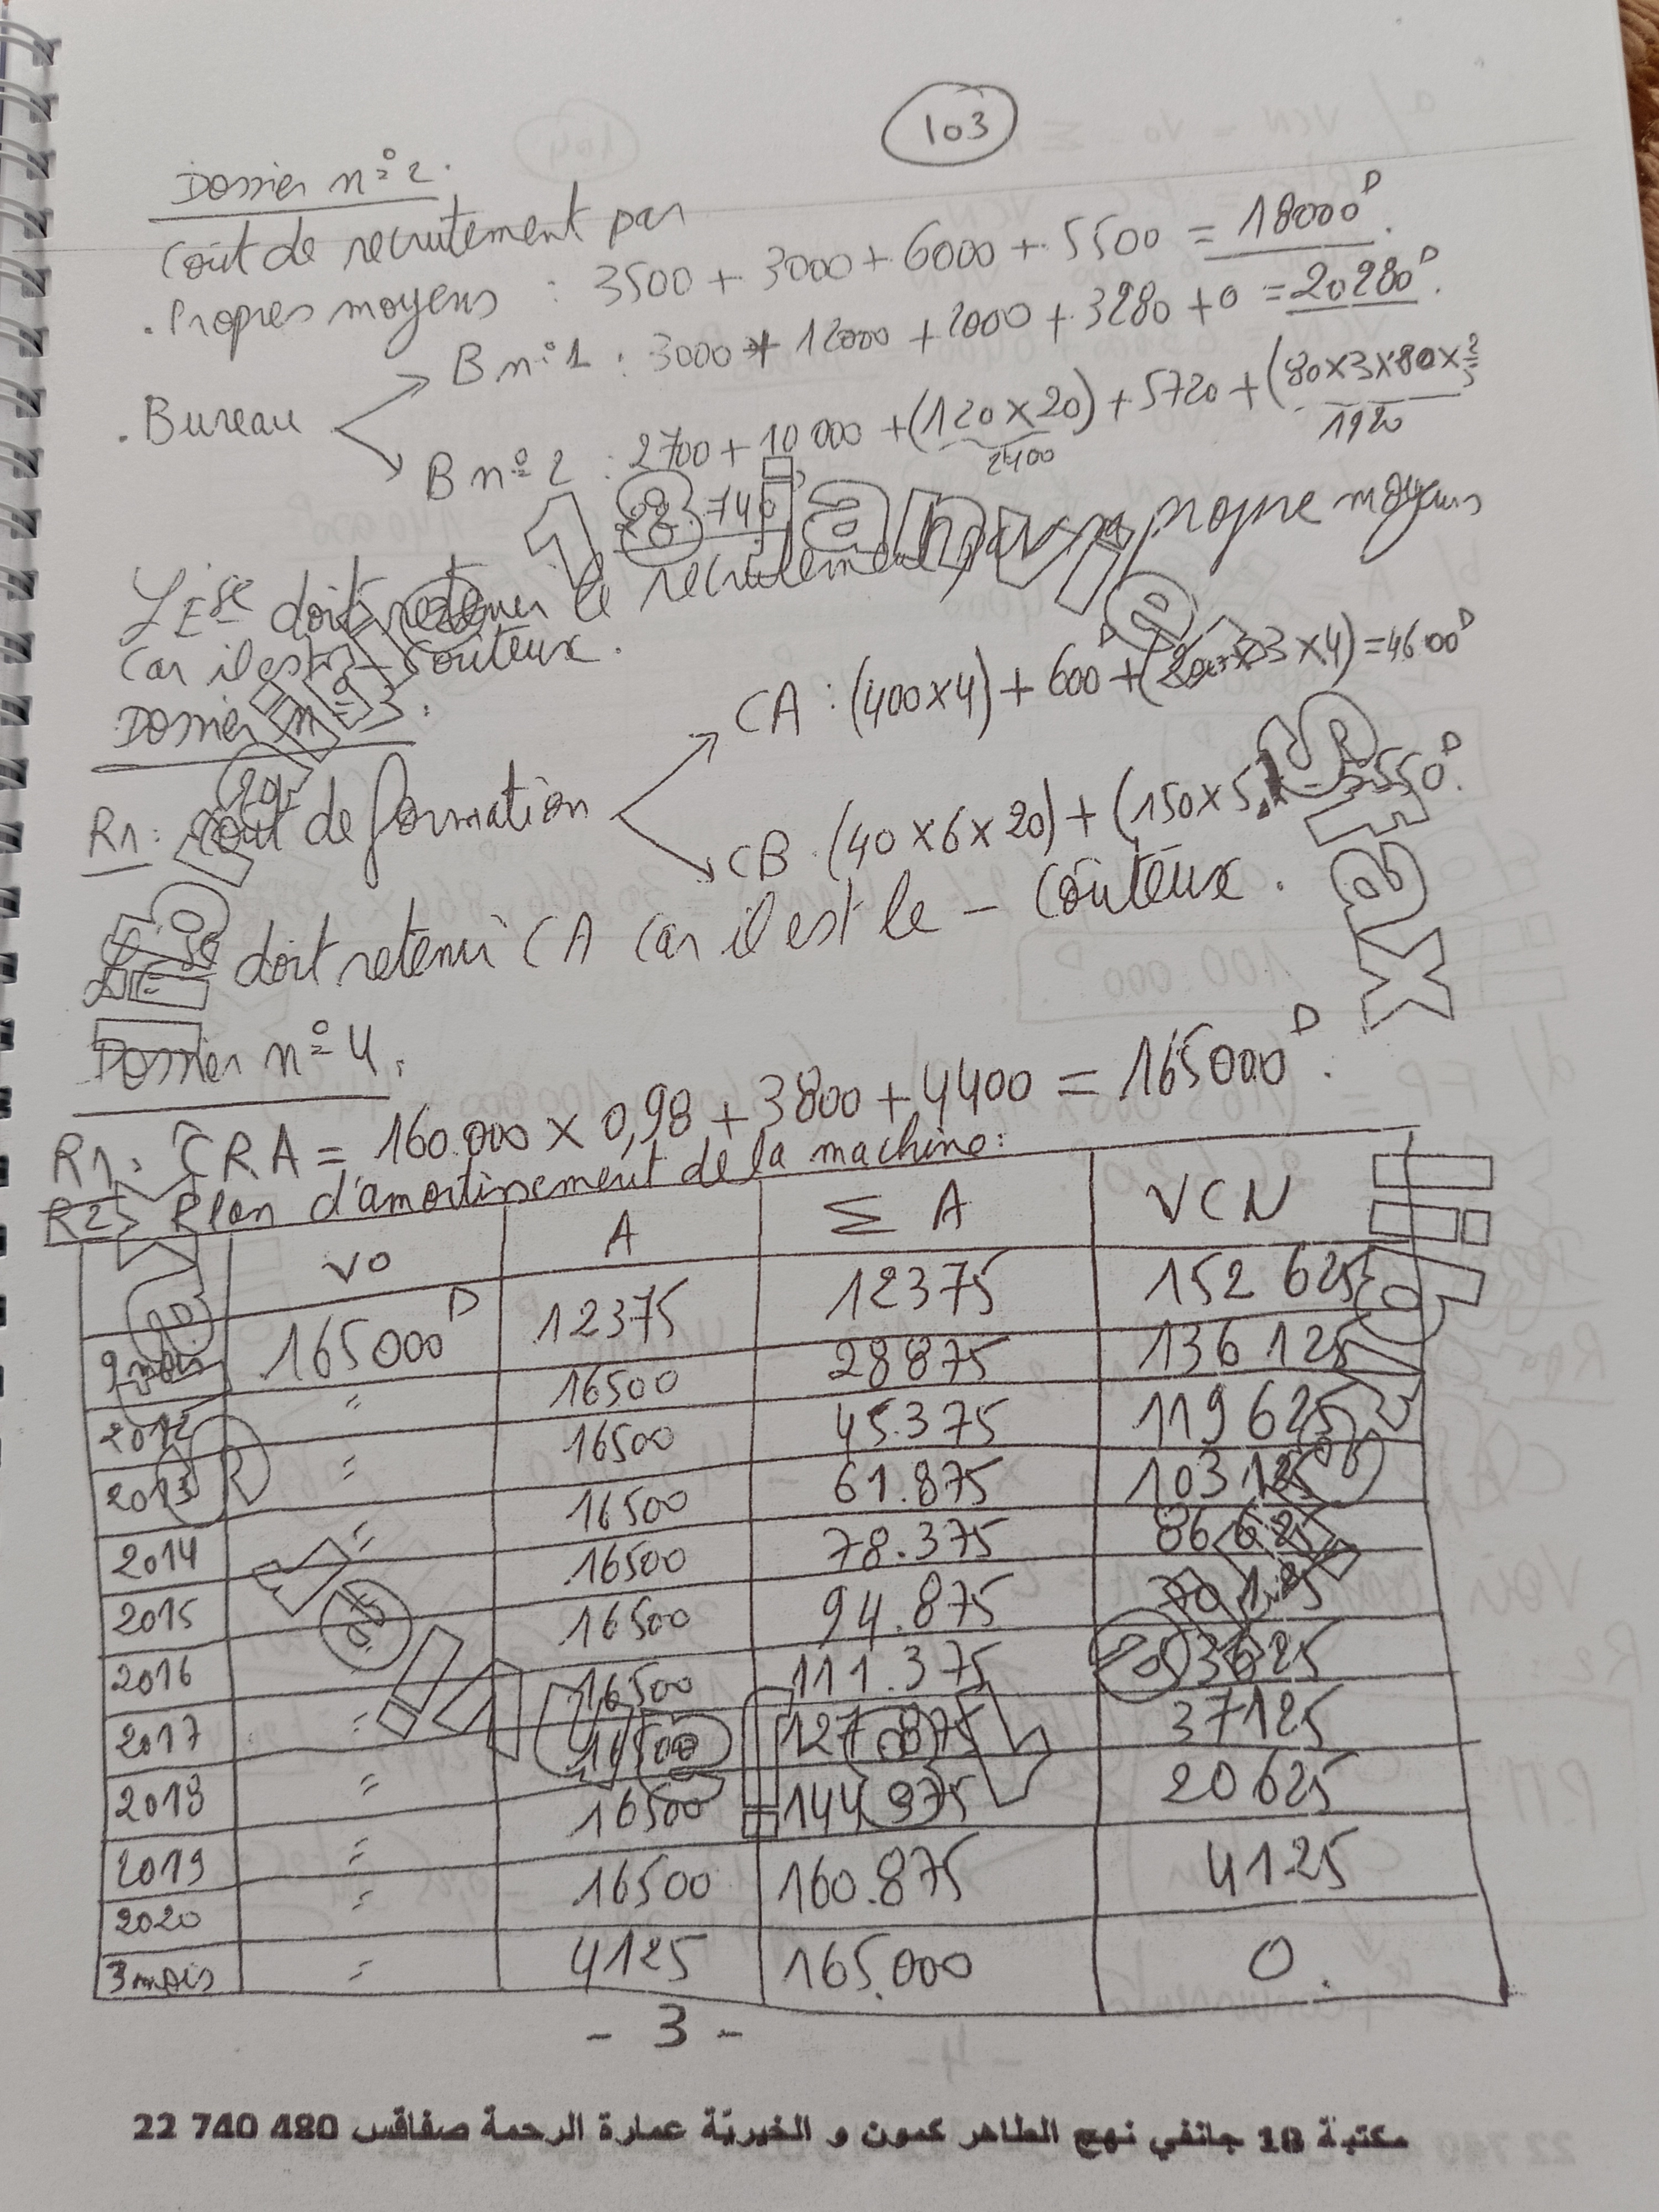 103
Dossier n° 2.
Coût de recrutement par
. Propres moyens : 3500 + 3000 + 6000 + 5500 = 18000 D.
. Bureau
B n° 1 : 3000 + 12000 + 2000 + 3280 + 0 = 20280 D.
B n° 2 : 2700 + 10 000 + (120 x 20) + 5720 + (80 x 3 x 80 x
2400
1920
740
18 janvier
L'Ese doit retenir le recrutement par propre moyens
car il est - coûteux.
Dossier n° 3 :
R1 : Coût de formation
CA : (400 x 4) + 600 D + ( x 4) = 4600 D
CB (40 x 6 x 20) + (150 x 5, 550 D.
Sfax
doit retenir CA car il est le - coûteux.
Dossier n° 4.
R1. CRA = 160.000 x 0,98 + 3800 + 4400 = 165000 D.
R2 Plan d'amortissement de la machine :
VO A Σ A VCN
9 mois 165000 D 12375 12375 152 625
2012 " 16500 28875 136 125
2013 " 16500 45.375 119 625
2014 " 16500 61.875 103 125
2015 16500 78.375 86 625
2016 16500 94.875 70 125
2017 " 16500 111.375 53625
2018 " 16500 127 875 37125
2019 " 16500 144 375 20 625
2020 " 16500 160.875 4125
3 mois " 4125 165.000 0.
- 3 -
مكتبة 18 جانفي نهج الطاهر كمون و الخيريّة عمارة الرحمة صفاقس 480 740 22